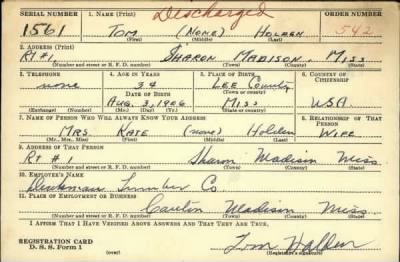 Discharged
SERIAL NUMBER 1. NAME (Print) ORDER NUMBER
1561 TOM (NONE) HOLDEN 542
(First) (Middle) (Last)
2. ADDRESS (Print)
Rt #1 SHARON MADISON, MISS
(Number and street or R. F. D. number) (Town) (County) (State)
3. TELEPHONE 4. AGE IN YEARS 5. PLACE OF BIRTH 6. COUNTRY OF CITIZENSHIP
none 34 LEE County
(Town or county)
DATE OF BIRTH
AUG. 3, 1906 MISS U.S.A.
(Exchange) (Number) (Mo.) (Day) (Yr.) (State or country)
7. NAME OF PERSON WHO WILL ALWAYS KNOW YOUR ADDRESS 8. RELATIONSHIP OF THAT PERSON
MRS KATE (none) Holden WIFE
(Mr., Mrs., Miss) (First) (Middle) (Last)
9. ADDRESS OF THAT PERSON
Rt #1 Sharon Madison Miss
(Number and street or R. F. D. number) (Town) (County) (State)
10. EMPLOYER'S NAME
Lumber Co
11. PLACE OF EMPLOYMENT OR BUSINESS
Canton Madison Miss
(Number and street or R. F. D. number) (Town) (County) (State)
I AFFIRM THAT I HAVE VERIFIED ABOVE ANSWERS AND THAT THEY ARE TRUE.
REGISTRATION CARD
D. S. S. Form 1 (over) Tom Holden
(Registrant's signature)